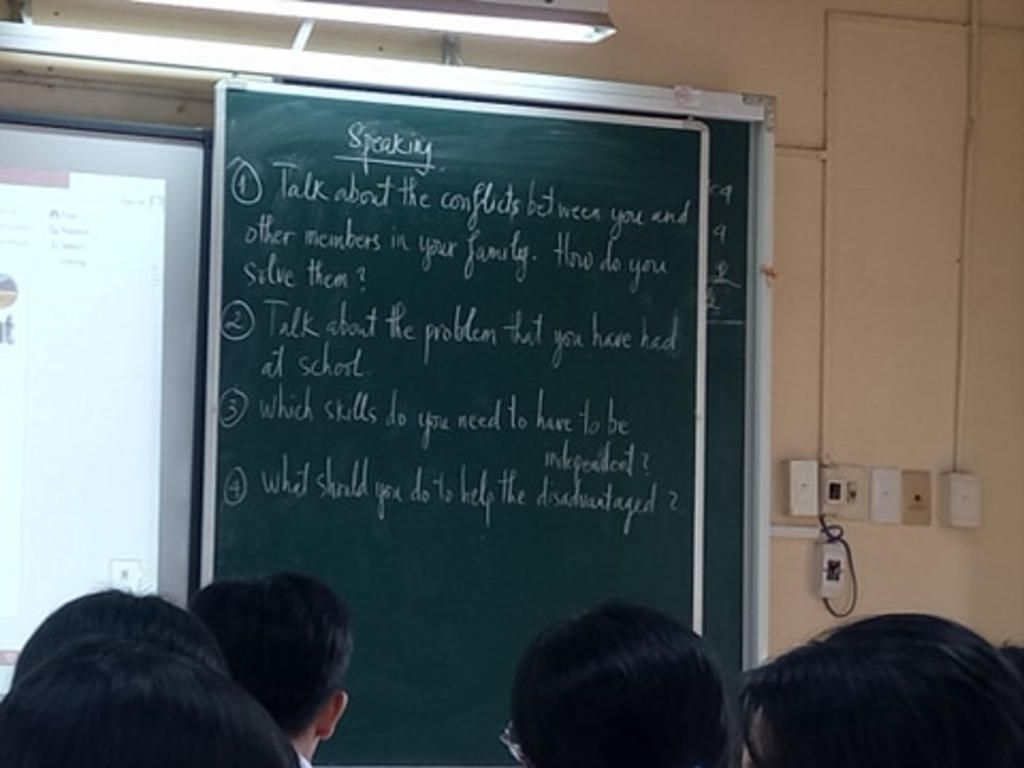 Speaking
① Talk about the conflicts between you and
other members in your family. How do you
solve them?
② Talk about the problem that you have had
at school.
③ Which skills do you need to have to be
independent?
④ What should you do to help the disadvantaged?